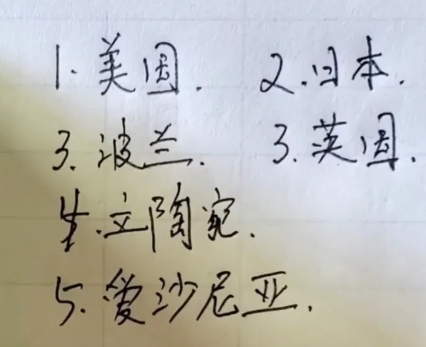 1. 美国. 2. 日本.
3. 波兰. 3. 英国.
4. 立陶宛.
5. 爱沙尼亚.